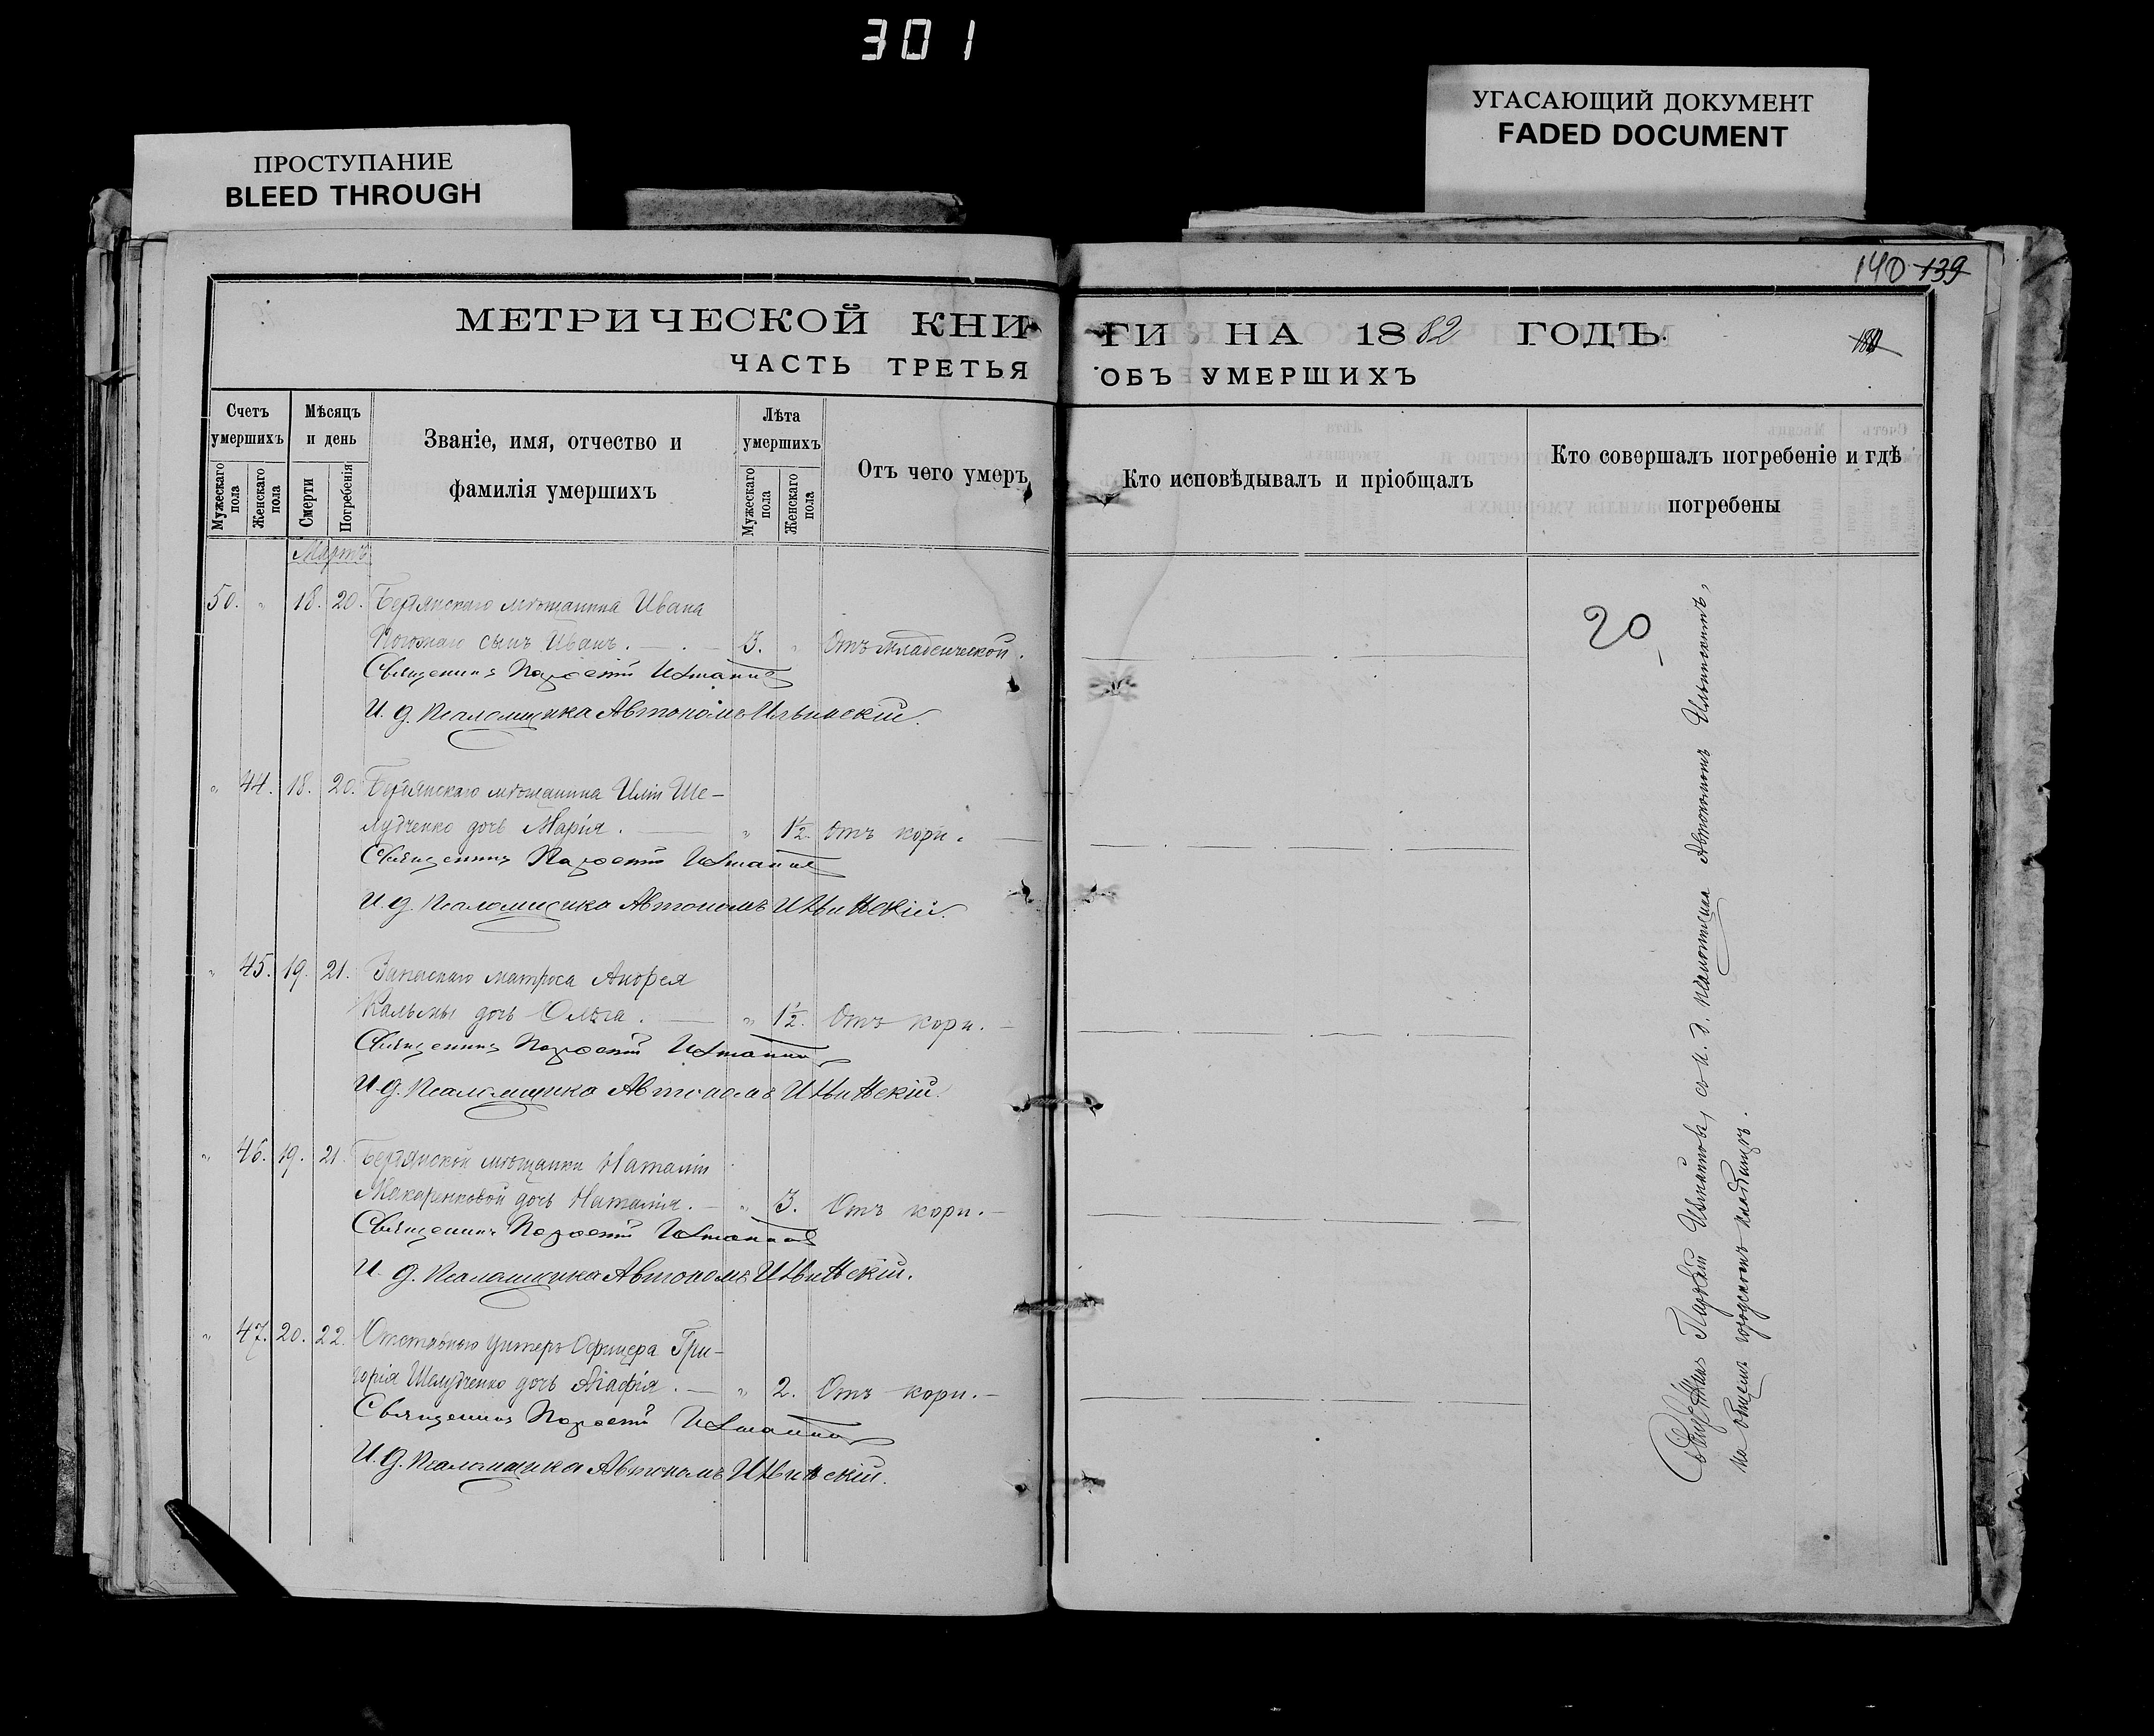 301
ПРОСТУПАНИЕ
BLEED THROUGH
УГАСАЮЩИЙ ДОКУМЕНТ
FADED DOCUMENT
140 139
МЕТРИЧЕСКОЙ КНИ
ГИ НА 1882 ГОДЪ.
ЧАСТЬ ТРЕТЬЯ
ОБЪ УМЕРШИХЪ
Счетъ умершихъ
Мужескаго пола
Женскаго пола
Мѣсяцъ и день
Смерти
Погребенія
Званіе, имя, отчество и
фамилія умершихъ
Лѣта умершихъ
Мужескаго пола
Женскаго пола
Отъ чего умеръ
Кто исповѣдывалъ и пріобщалъ
Кто совершалъ погребеніе и гдѣ
погребены
Мартъ
50. " 18. 20. Бердянскаго мѣщанина Ивана
сынъ Иванъ. 3. " Отъ младенческой.
Священникъ
И. д. Псаломщика Автономъ Ильинскій.
" 44. 18. 20. Бердянскаго мѣщанина Иліи Ше-
лудченко дочь Марія. " 1½. Отъ кори.
Священникъ
И. д. Псаломщика Автономъ Ильинскій.
" 45. 19. 21. Запаснаго матроса Андрея
дочь Ольга. " 1½. Отъ кори.
Священникъ
И. д. Псаломщика Автономъ Ильинскій.
" 46. 19. 21. Бердянской мѣщанки Наталіи
Макаренковой дочь Наталія. " 3. Отъ кори.
Священникъ
И. д. Псаломщика Автономъ Ильинскій.
" 47. 20. 22. Отставнаго Унтеръ Офицера Гри-
горія Шелудченко дочь Агафія. " 2. Отъ кори.
Священникъ
И. д. Псаломщика Автономъ Ильинскій.
20
Священникъ съ и. д. псаломщика Автономомъ Ильинскимъ,
на общемъ городскомъ кладбищѣ.